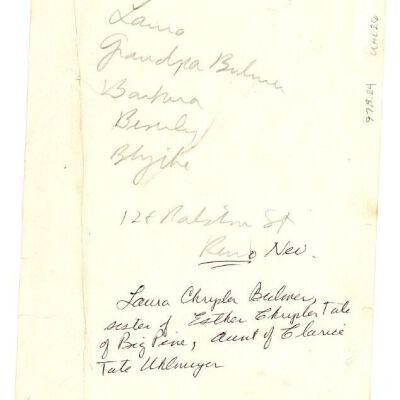 Laura
Grandpa Bulmer
Barbara
Beverly
Blythe
128 Ralston St
Reno Nev.
Laura Chrysler Bulmer,
sister of Esther Chrysler Tate
of Big Pine, aunt of Clarice
Tate Uhlmeyer
97.9.24 UHL26